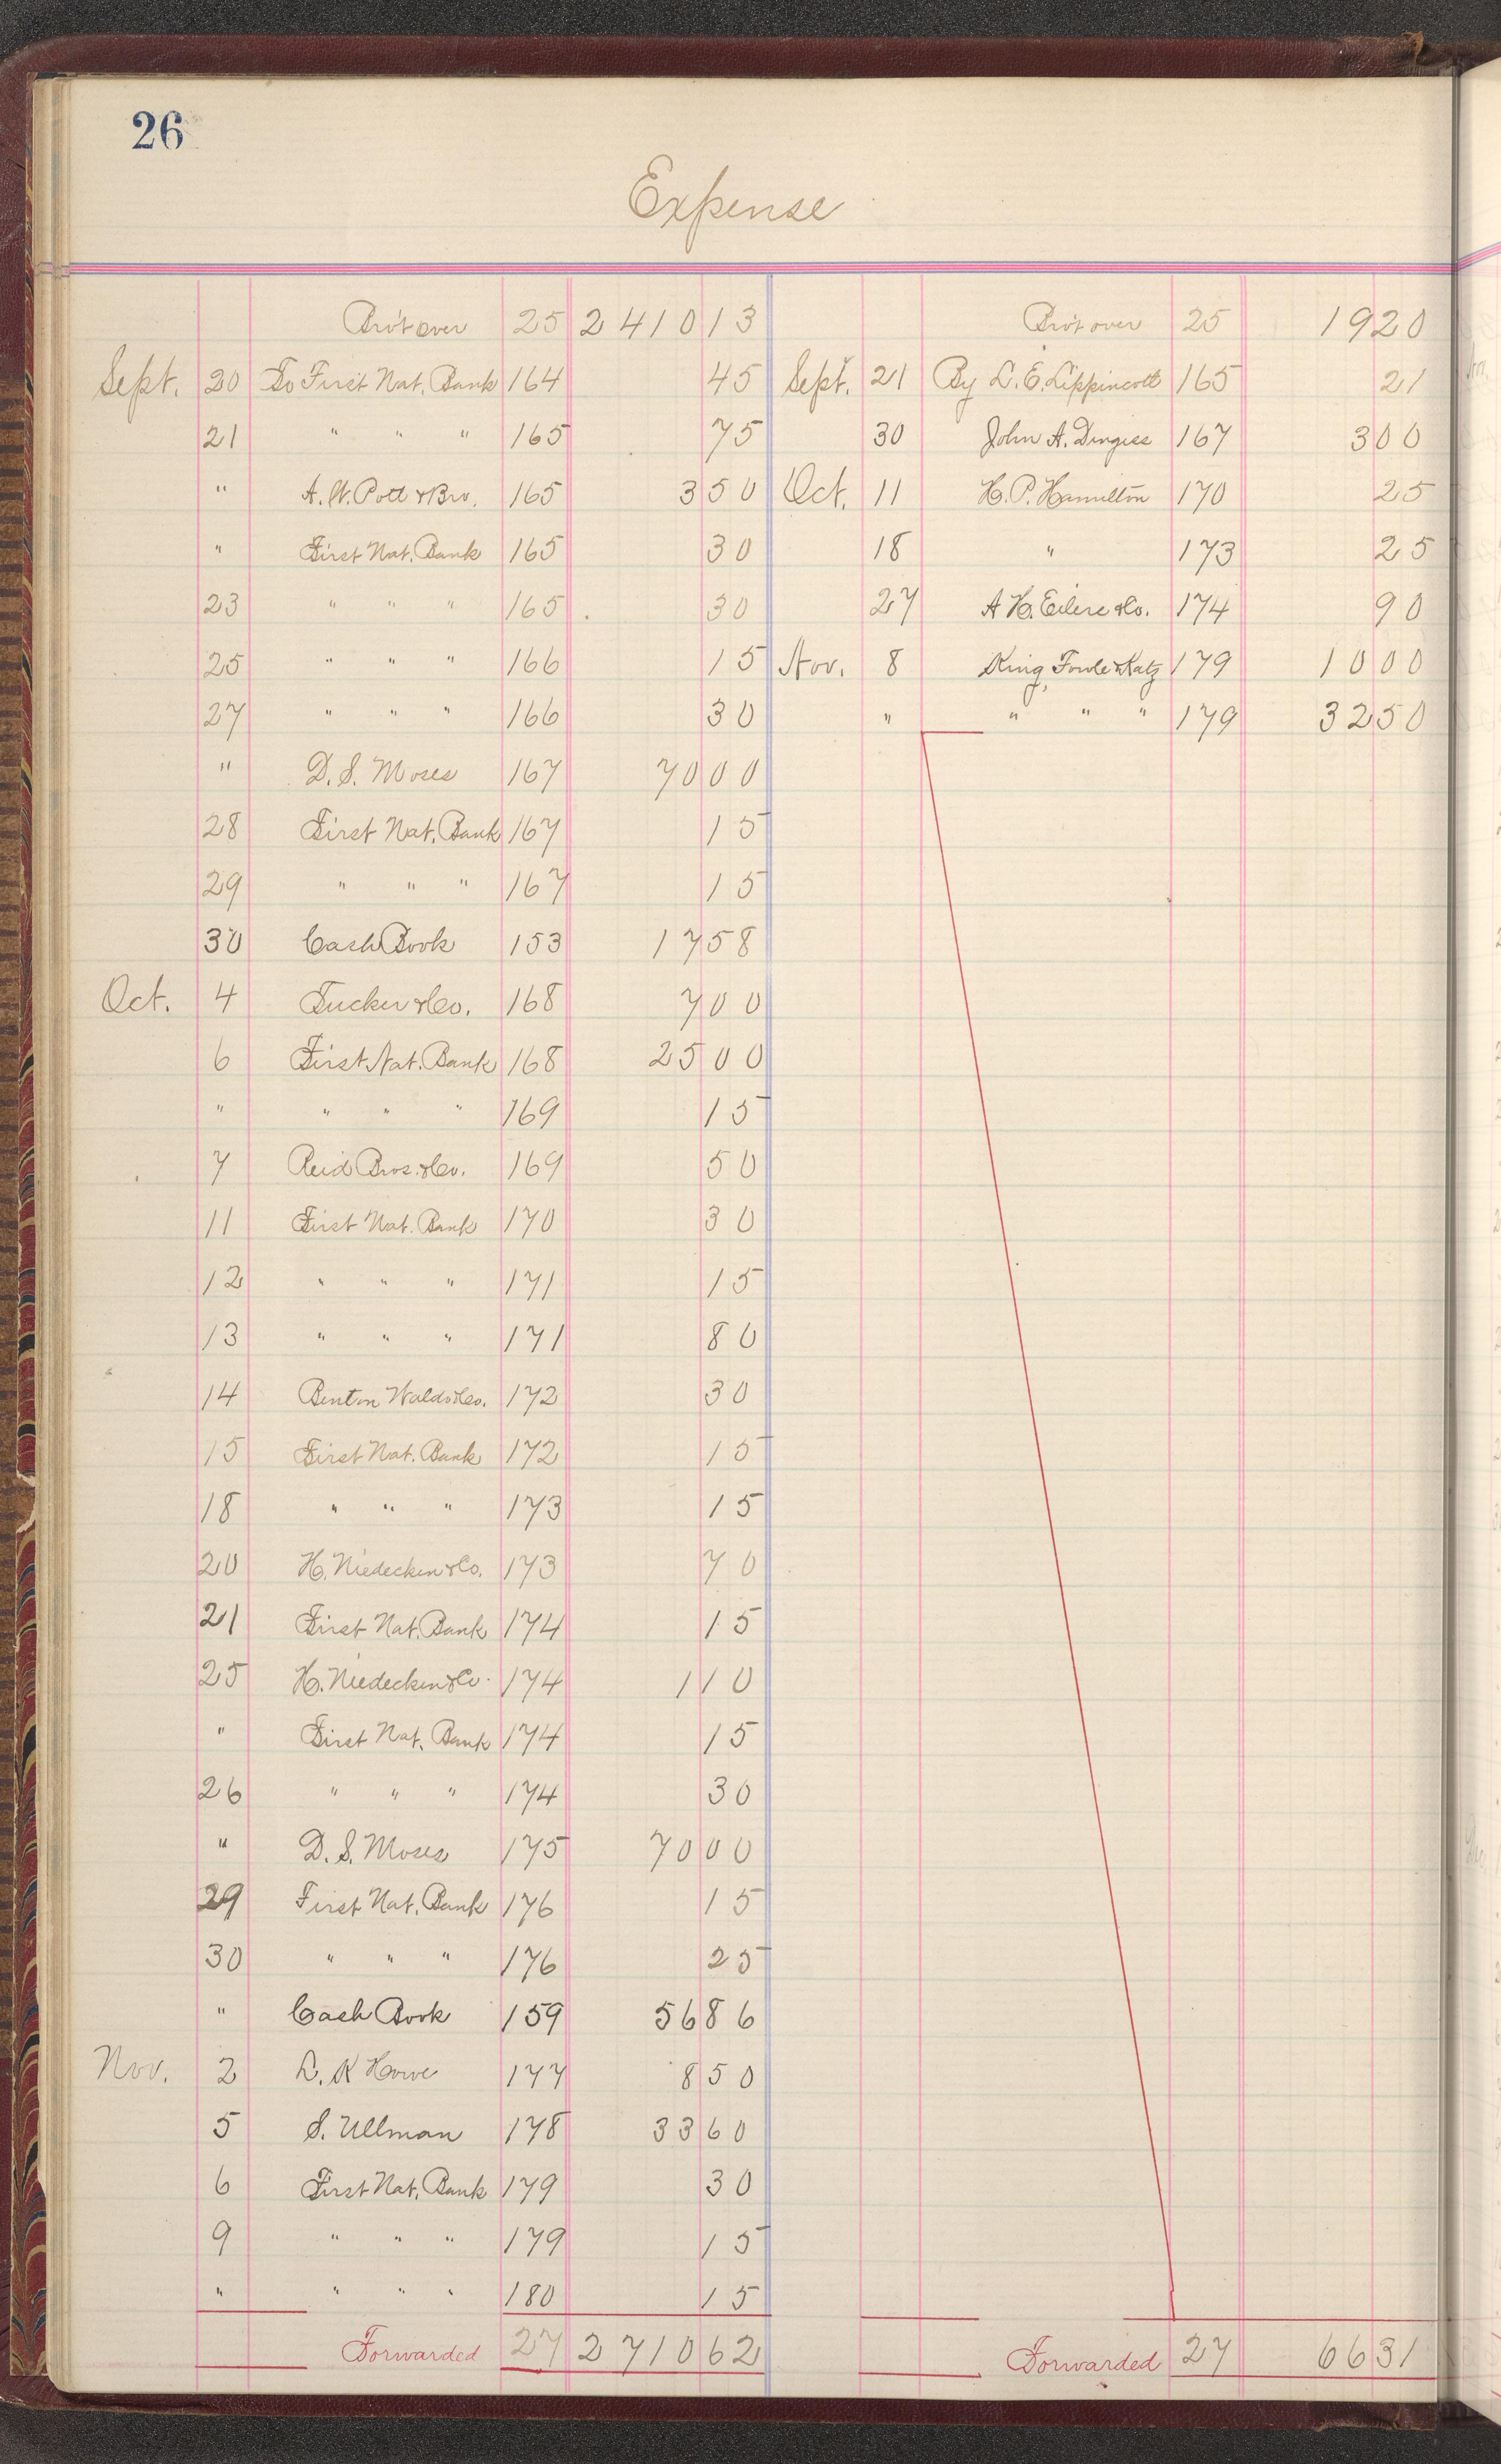 26
Expense
Bro't over 25 2410 13
Sept. 20 To First Nat. Bank 164 45
21 " " " 165 75
" A. W. Pott & Bro. 165 3 50
" First Nat. Bank 165 30
23 " " " 165 30
25 " " " 166 15
27 " " " 166 30
" D. S. Moses 167 70 00
28 First Nat. Bank 167 15
29 " " " 167 15
30 Cash Book 153 17 58
Oct. 4 Tucker & Co. 168 7 00
6 First Nat. Bank 168 25 00
" " " " 169 15
7 Reid Bros. & Co. 169 50
11 First Nat. Bank 170 30
12 " " " 171 15
13 " " " 171 80
14 Benton Waldo & Co. 172 30
15 First Nat. Bank 172 15
18 " " " 173 15
20 H. Niedecken & Co. 173 70
21 First Nat. Bank 174 15
25 H. Niedecken & Co. 174 1 10
" First Nat. Bank 174 15
26 " " " 174 30
" D. S. Moses 175 70 00
29 First Nat. Bank 176 15
30 " " " 176 25
" Cash Book 159 56 86
Nov. 2 L. K Howe 177 8 50
5 S. Ullman 178 33 60
6 First Nat. Bank 179 30
9 " " " 179 15
" " " " 180 15
Forwarded 27 2710 62
Bro't over 25 19 20
Sept. 21 By L. E. Lippincott 165 21
30 John A. Dingess 167 3 00
Oct. 11 H. P. Hamilton 170 25
18 " 173 25
27 A H. Eilers & Co. 174 90
Nov. 8 King, Fowle & Katz 179 10 00
" " " " 179 32 50
Forwarded 27 66 31